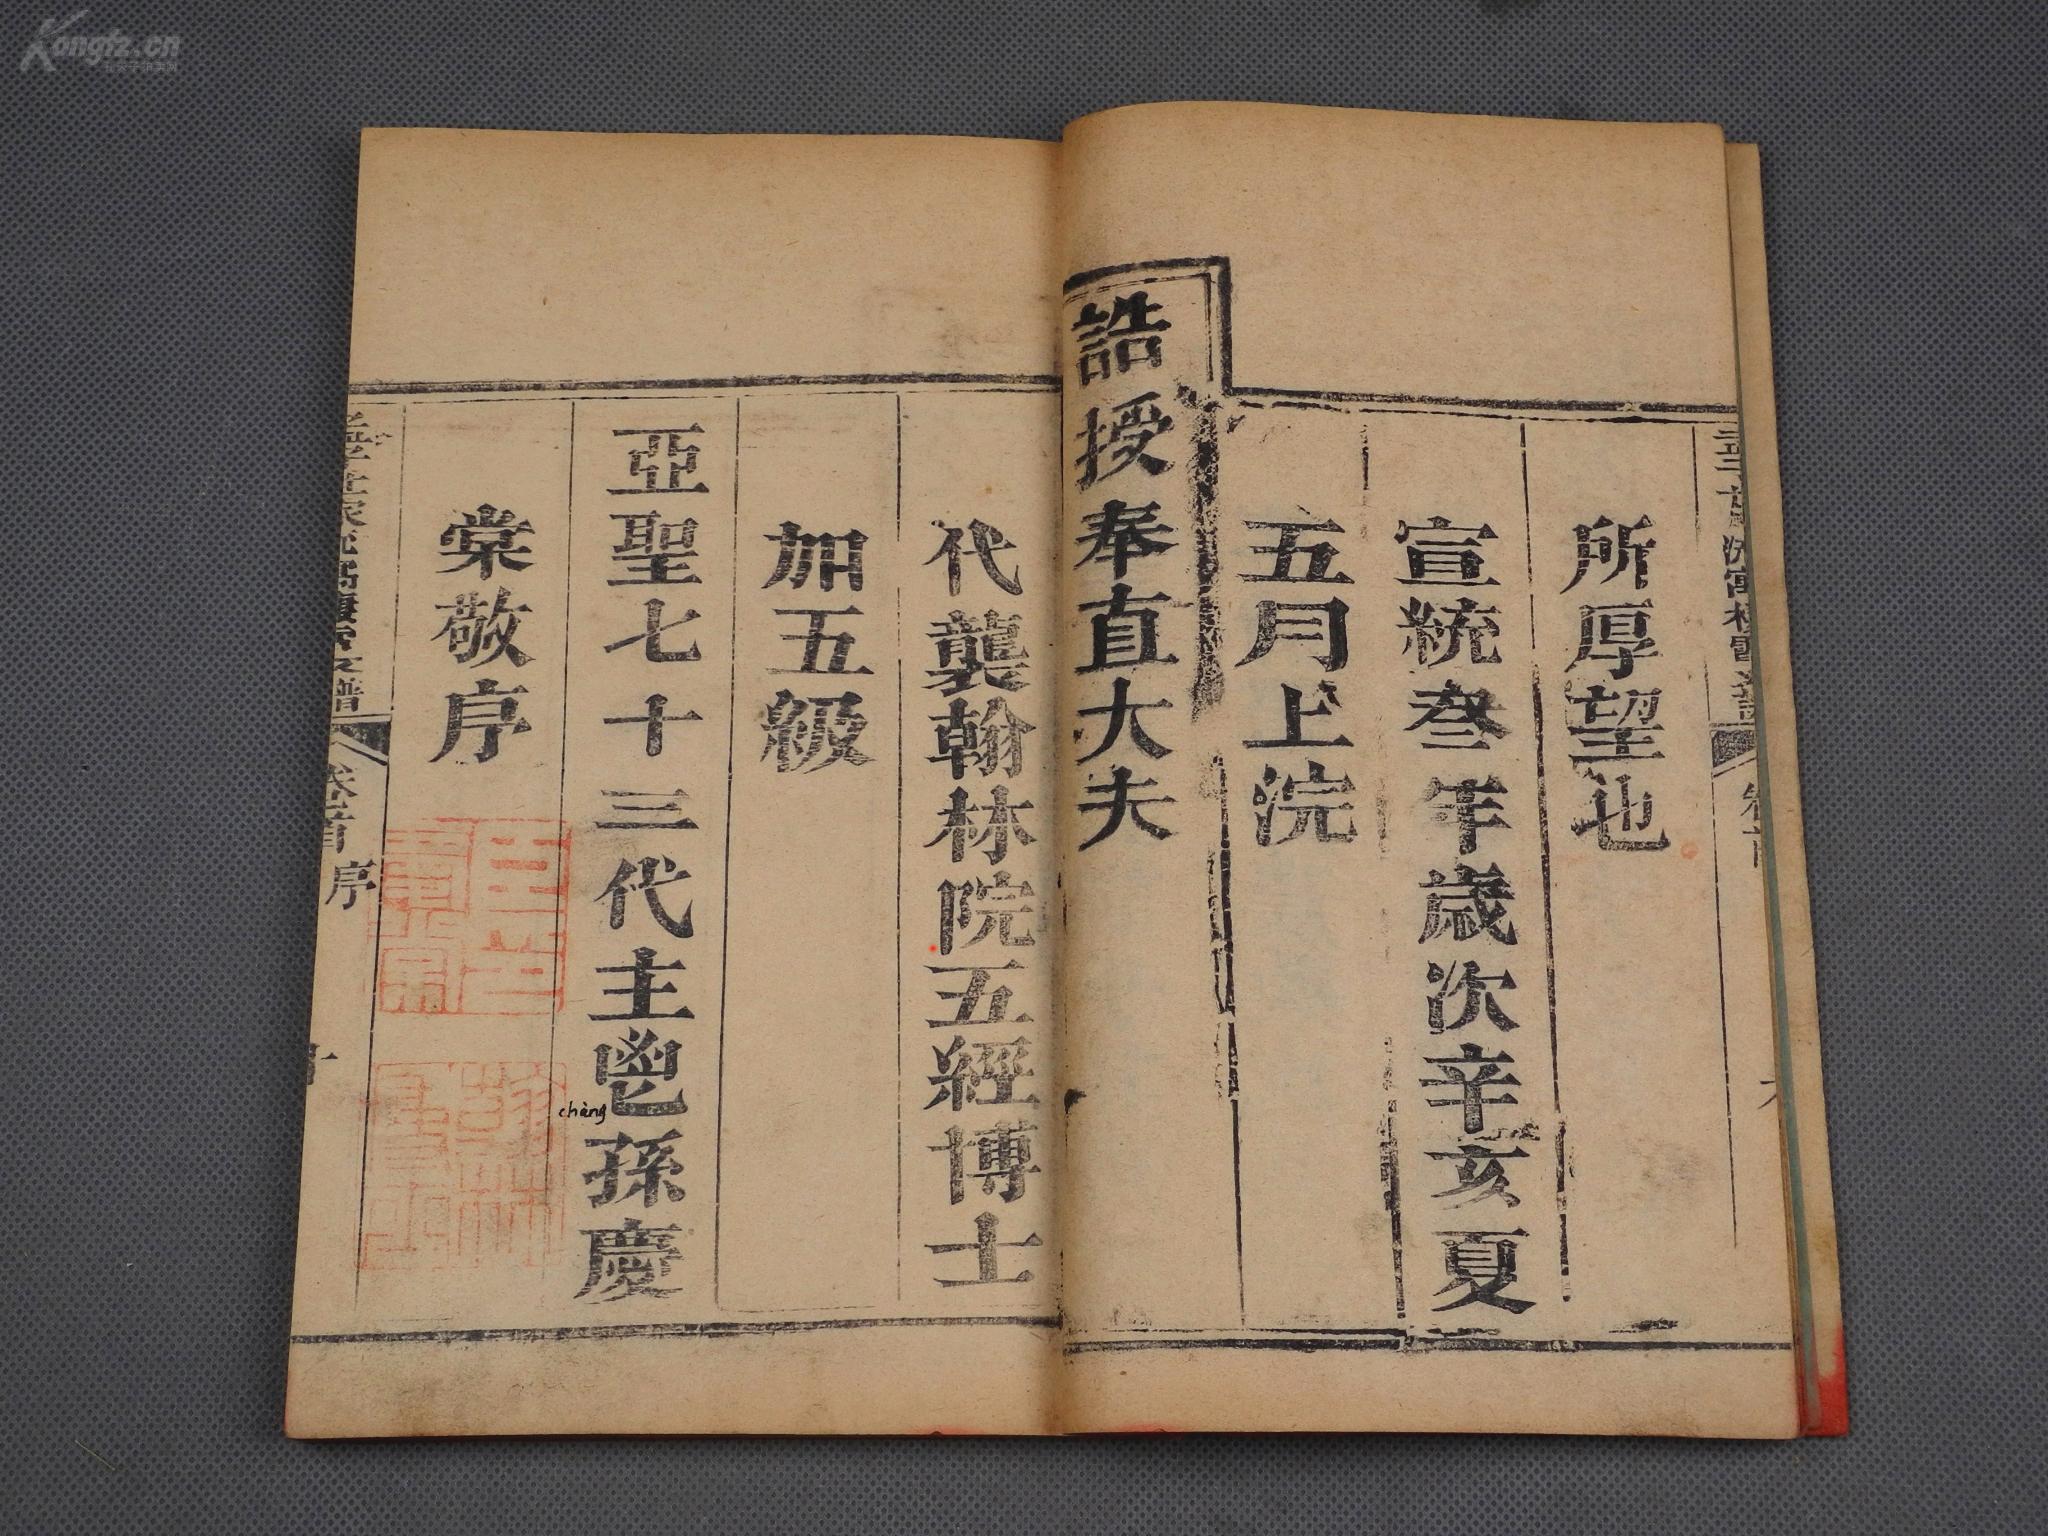 所厚望也
宣統叁年歲次辛亥夏
五月上浣
誥授奉直大夫
代襲翰林院五經博士
加五級
亞聖七十三代主鬯孫慶
chàng
棠敬序
卷首 序
Kongfz.cn
孔夫子拍卖网